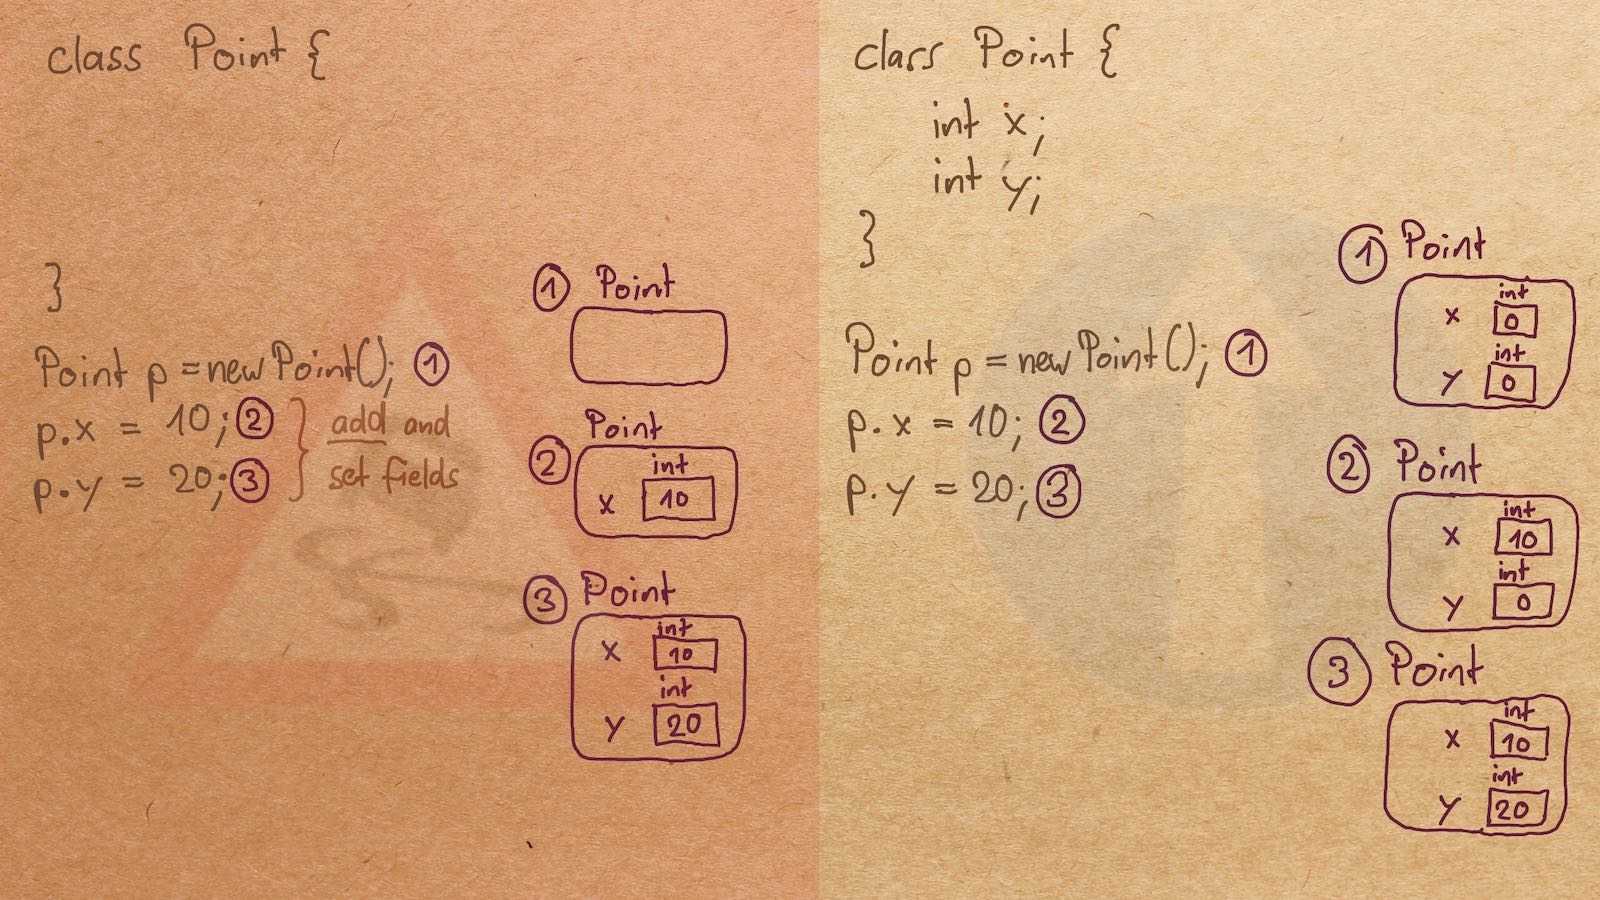 class Point {
}
Point p = new Point(); 1
p.x = 10; 2
p.y = 20; 3
} add and
set fields
1 Point
2 Point
int
x 10
3 Point
int
x 10
int
y 20
class Point {
int x;
int y;
}
Point p = new Point(); 1
p.x = 10; 2
p.y = 20; 3
1 Point
int
x 0
int
y 0
2 Point
int
x 10
int
y 0
3 Point
int
x 10
int
y 20